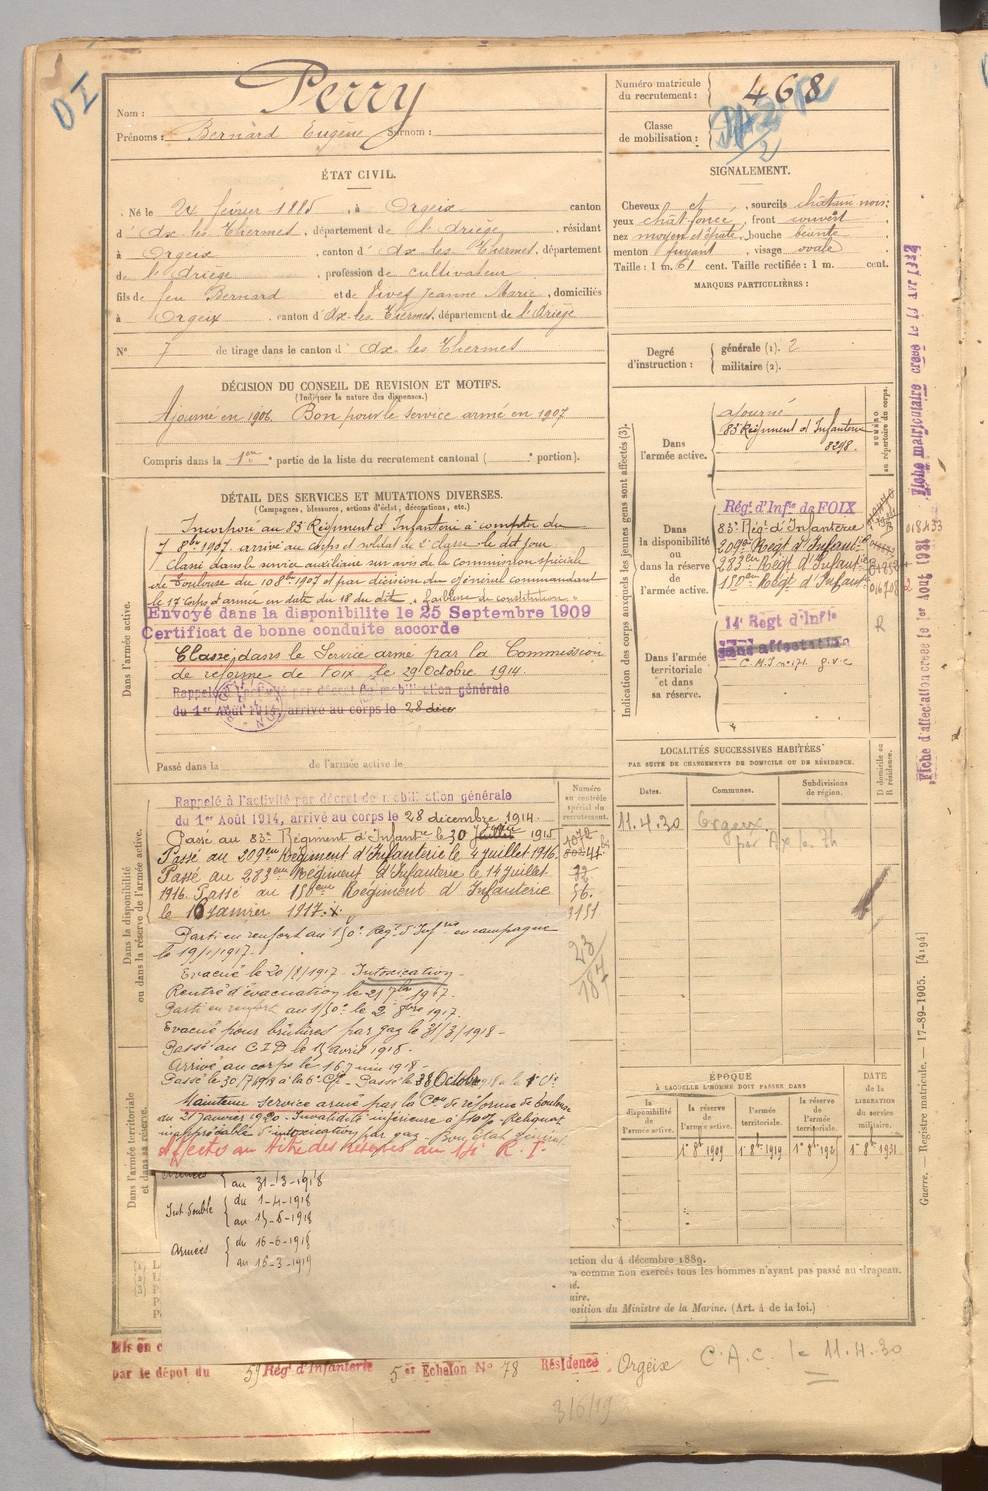 Nom : Perry
Prénoms : Bernard Eugène Surnom :
Numéro matricule du recrutement : 468
Classe de mobilisation :
ÉTAT CIVIL.
Né le 24 février 1885, à Orgeix canton
d'Ax-les-Thermes, département de l'Ariège, résidant
à Orgeix, canton d'Ax-les-Thermes, département
de l'Ariège, profession de cultivateur
fils de feu Bernard et de Vives Jeanne Marie, domiciliés
à Orgeix, canton d'Ax-les-Thermes, département de l'Ariège
N° 7 de tirage dans le canton d'Ax les Thermes
SIGNALEMENT.
Cheveux et, sourcils châtain noir;
yeux chât. foncé, front couvert,
nez moyen et épaté, bouche béante,
menton fuyant, visage ovale
Taille : 1 m. 61 cent. Taille rectifiée : 1 m. cent.
MARQUES PARTICULIÈRES :
Degré d'instruction : générale (1). 2
militaire (2).
DÉCISION DU CONSEIL DE REVISION ET MOTIFS.
(Indiquer la nature des dispenses.)
Ajourné en 1906. Bon pour le service armé en 1907
Compris dans la 1ère partie de la liste du recrutement cantonal ( portion).
DÉTAIL DES SERVICES ET MUTATIONS DIVERSES.
(Campagnes, blessures, actions d'éclat, décorations, etc.)
Dans l'armée active.
Incorporé au 83e Régiment d'Infanterie à compter du
7 8bre 1907. arrivé au corps et soldat de 2e classe le dit jour
Classé dans le service auxiliaire sur avis de la commission spéciale
de Toulouse du 10 8bre 1907 et par décision du général commandant
le 17e Corps d'armée en date du 18 du dit. "faiblesse de constitution"
Envoyé dans la disponibilite le 25 Septembre 1909
Certificat de bonne conduite accorde
Classé dans le Service armé par la Commission
de réforme de Foix le 29 Octobre 1914.
Rappelé à l'activité par décret de mobilisation générale
du 1er Août 1914, arrivé au corps le 28 déce
Passé dans la de l'armée active le
Dans la disponibilité ou dans la réserve de l'armée active.
Rappelé à l'activité par décret de mobilisation générale
du 1er Août 1914, arrivé au corps le 28 décembre 1914.
Passé au 83e Régiment d'Infantie le 30 Juillet 1915
Passé au 209eme Régiment d'Infanterie le 4 juillet 1916.
Passé au 283eme Régiment d'Infanterie le 14 juillet
1916. Passé au 150eme Régiment d'Infanterie
le 16 janvier 1917.
Parti en renfort au 150e Rég. d'Infrie en campagne
le 19/1/1917.
Evacué le 20/8/1917. Intoxication.
Rentré d'évacuation le 21 7bre 1917.
Parti en renfort au 150e le 2 8bre 1917.
Evacué pour brûlures par gaz le 31/3/1918.
Passé au C.I.D le 15 avril 1918.
Arrivé au corps le 16 Juin 1918.
Passé le 30/7/1918 à la 6e Cie. Passé le
Maintenu service armé par la Con de réforme de Toulouse
du 21 Janvier 1920. Invalidité inférieure à
inappréciable d'intoxication par gaz. Bon état général
Affecté au titre des réserves au 14e R. I.
Armées
au 31-3-1918
Int. Double
du 1-4-1918
au 15-6-1918
Armées
du 16-6-1918
au 16-3-1919
Dans l'armée territoriale et dans sa réserve.
Numéro au contrôle spécial du recrutement.
56.
3151
23
187
Indication des corps auxquels les jeunes gens sont affectés (3).
NUMÉRO au répertoire du corps.
Dans l'armée active.
ajourné
83e Régiment d'Infanterie
8298.
Dans la disponibilité ou dans la réserve de l'armée active.
Régt d'Infie de FOIX
83e Rég. d'Infanterie
209e Régt d'Infantie
283e Régt d'Infantie
150e Régt d'Infantie
018433
Dans l'armée territoriale et dans sa réserve.
14e Régt d'Infie
sans affectation
C.M.J n°171. g.v.c
Fiche matriculaire créée le
Fiche d'affectation créée le 1er Août 1931
LOCALITÉS SUCCESSIVES HABITÉES
PAR SUITE DE CHANGEMENTS DE DOMICILE OU DE RÉSIDENCE.
Dates.
Communes.
Subdivisions de région.
D domicile ou R résidence.
11.4.30
Orgeix.
par Ax les Th
ÉPOQUE
À LAQUELLE L'HOMME DOIT PASSER DANS
la disponibilité de l'armée active.
la réserve de l'armée active.
l'armée territoriale.
la réserve de l'armée territoriale.
DATE de la LIBÉRATION du service militaire.
1er 8bre 1909
1er 8bre 1919
1er 8bre 1925
1er 8bre 1931
uction du 4 décembre 1889.
comme non exercés tous les hommes n'ayant pas passé au drapeau.
position du Ministre de la Marine. (Art. 4 de la loi.)
Guerre. — Registre matricule. — 17-89-1905. [4194]
Mis en c
par le dépôt du 59 Régt d'Infanterie 5er Echelon N° 78 Résidence, Orgeix
C.A.C. le 11.4.30
3/6/19